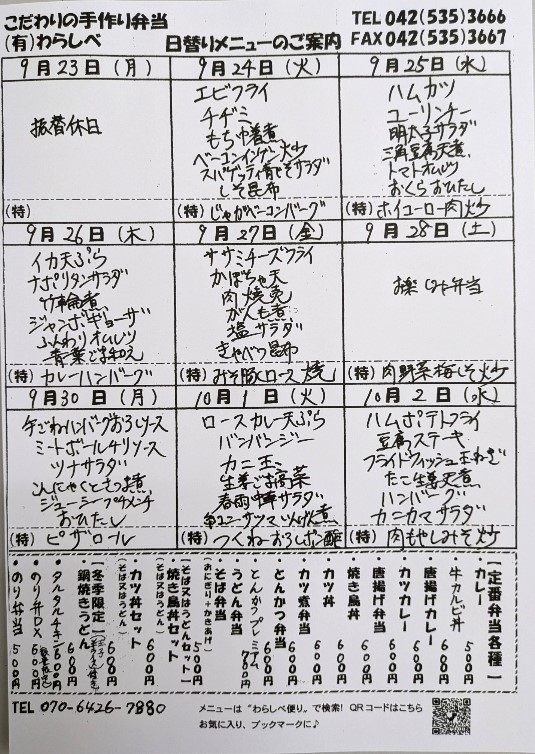 こだわりの手作り弁当
(有)わらしべ
日替りメニューのご案内
TEL 042(535)3666
FAX 042(535)3667
9月23日(月)
振替休日
(特)
9月24日(火)
エビフライ
チヂミ
もち巾着煮
ベーコンインゲン炒
スパゲッティ青じそサラダ
しそ昆布
(特)じゃがベーコンバーグ
9月25日(水)
ハムカツ
ユーリンチー
明太子サラダ
三角豆腐天煮
トマトオムレツ
おくらおひたし
(特)ホイコーロー肉炒
9月26日(木)
イカ天ぷら
ナポリタンサラダ
竹輪煮
ジャンボギョーザ
ふんわりオムレツ
青菜ごま和え
(特)カレーハンバーグ
9月27日(金)
ササミチーズフライ
かぼちゃ天
肉焼売
がんも煮
塩サラダ
きゃべつ昆布
(特)みそ豚ロース焼
9月28日(土)
お楽しみ弁当
(特)肉野菜梅しそ炒
9月30日(月)
手ごねハンバーグおろしソース
ミートボールチリソース
ツナサラダ
こんにゃくとさつま煮
ジューシーメンチ
おひたし
(特)ピザロール
10月1日(火)
ロースカレー天ぷら
バンバンジー
カニ玉
生姜ごま高菜
春雨中華サラダ
(特)つくねおろしポン酢
10月2日(水)
ハムポテトフライ
豆腐ステーキ
フライドフィッシュ玉ねぎ
たこ生姜天煮
ハンバーグ
カニカマサラダ
(特)肉もやしみそ炒
【定番弁当各種】
・カレー 500円
・牛カルビ丼
・唐揚げカレー 600円
・カツカレー 600円
・唐揚げ弁当 600円
・焼き鳥丼 600円
・カツ丼 600円
・カツ煮弁当 600円
・とんかつ弁当 600円
・とんかつプレミアム 780円
・うどん弁当
・そば弁当 500円
(おにぎり+かきあげ)
【そば又はうどんセット】
・焼き鳥丼セット 600円
(そば又はうどん)
・カツ丼セット 600円
(そば又はうどん)
【冬季限定】
・鍋焼きうどん 600円
・タルタルチキン 600円
・のり弁DX 600円
・のり弁当 500円
TEL 070-6426-7880
メニューは“わらしべ便り”で検索! QRコードはこちら
お気に入り、ブックマークに♪